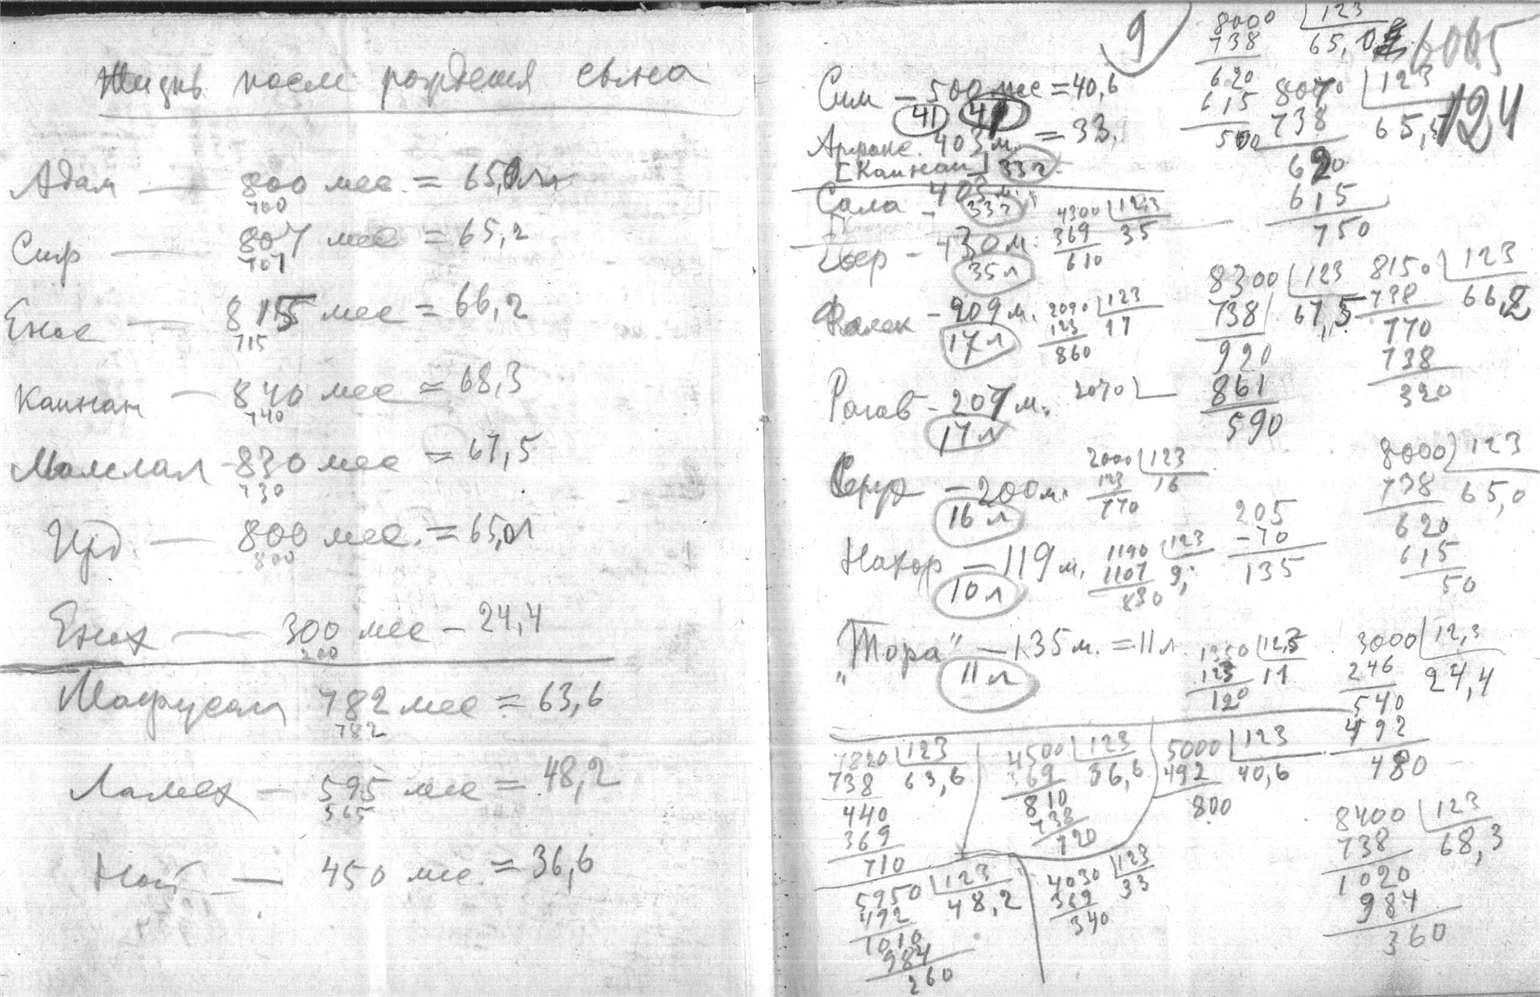 Жизнь после рождения сына
Адам — 800 мес. = 65,0 л
700
Сиф — 807 мес = 65,2
707
Енос — 815 мес = 66,2
715
Каинан — 840 мес = 68,3
740
Малелал - 830 мес = 67,5
730
Иред. — 800 мес. = 65,0л
800
Енох — 300 мес - 24,4
200
Мафусал 782 мес = 63,6
782
Ламех — 595 мес = 48,2
565
Ной — 450 мес. = 36,6
9
Сим — 500 мес = 40,6
41
Арфакс. 403 м. = 33.
[Каинан] 33 г
Сала - 403 м.
33 г
Евер - 430 м.
35 л
4300 | 12,3
369 35
610
Фалек - 209 м.
17 л
2090 | 123
123 17
860
Рагав - 207 м.
17 л
2070
Серух - 200 м.
16 л
2000 | 123
123 16
770
Нахор - 119 м.
10 л
1190 | 123
1107 9,
830
"Тора" - 135 м. = 11 л
11 л
1350 | 12,3
123 11
120
8000 | 123
738 65,0
620
615
500
6005
124
8070 | 123
738 65,5
620
615
750
8300 | 123
738 67,5
920
861
590
8150 | 123
738 66,2
770
738
320
8000 | 123
738 65,0
620
615
50
205
-70
135
3000 | 12,3
246 24,4
540
492
480
7820 | 123
738 63,6
440
369
710
4500 | 123
369 36,6
810
738
720
5000 | 123
492 40,6
800
5950 | 123
492 48,2
1010
984
260
4030 | 123
369 33
340
8400 | 123
738 68,3
1020
984
360